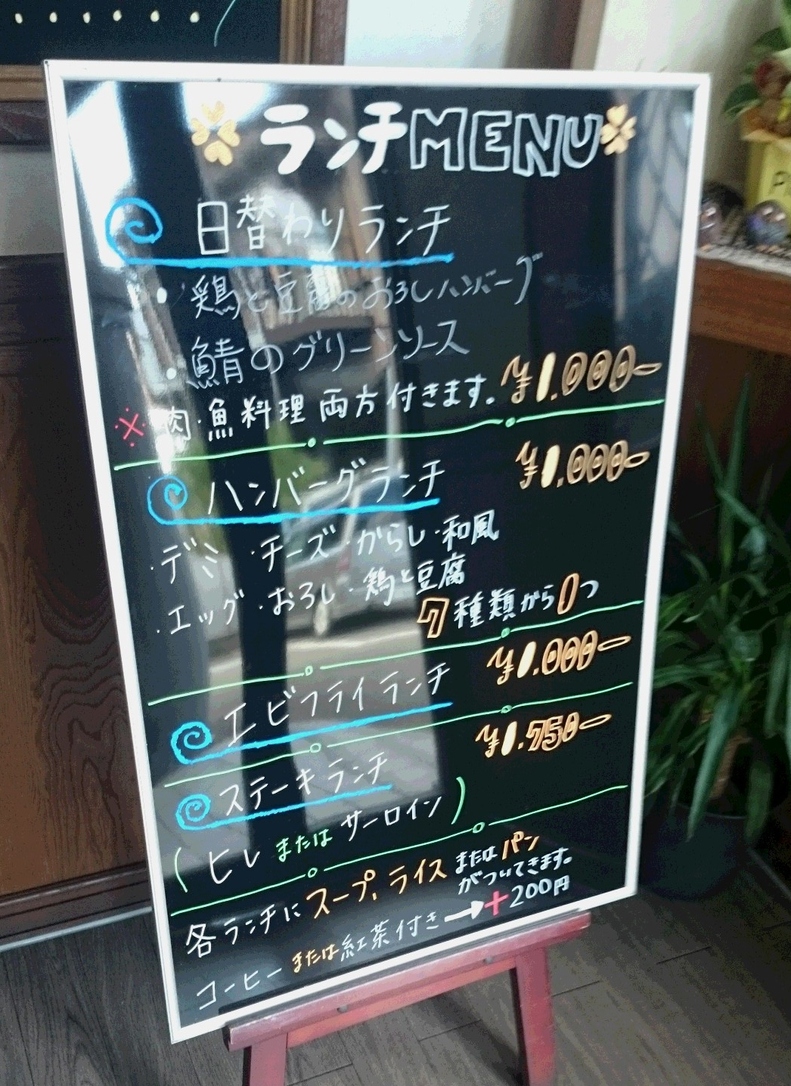 ランチMENU
日替わりランチ
・鶏と豆腐のおろしハンバーグ
・鯖のグリーンソース
※肉・魚料理両方付きます。 ¥1.000-
ハンバーグランチ ¥1.000-
・デミ ・チーズ ・からし ・和風
・エッグ ・おろし ・鶏と豆腐
7種類から1つ
エビフライランチ ¥1.000-
ステーキランチ ¥1.750-
(ヒレまたはサーロイン)
各ランチにスープ、ライスまたはパン
がついてきます。
コーヒーまたは紅茶付き→+200円